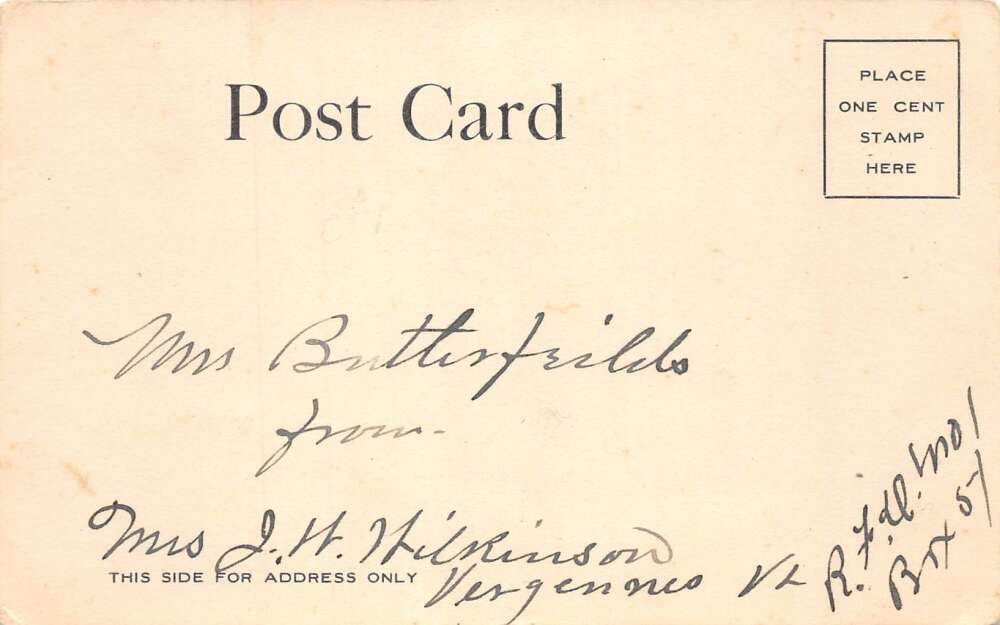 Post Card
PLACE
ONE CENT
STAMP
HERE
Mrs Butterfeilds
from-
Mrs J. W. Wilkinson
THIS SIDE FOR ADDRESS ONLY
Vergennes Vt
R. f. d. No 1
Box 51